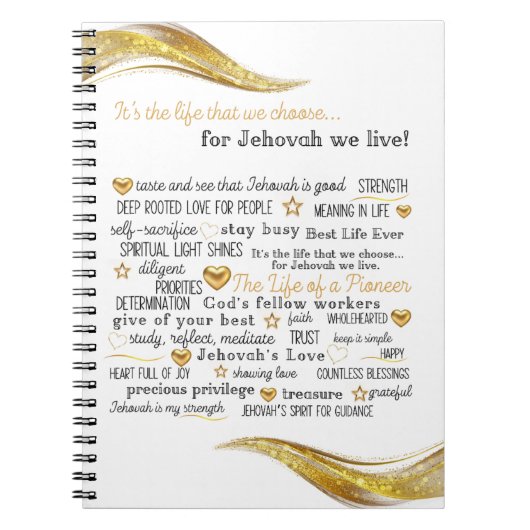 It's the life that we choose...
for Jehovah we live!
taste and see that Jehovah is good STRENGTH
DEEP ROOTED LOVE FOR PEOPLE MEANING IN LIFE
self-sacrifice stay busy Best Life Ever
SPIRITUAL LIGHT SHINES It's the life that we choose...
for Jehovah we live.
diligent
PRIORITIES The Life of a Pioneer
DETERMINATION God's fellow workers
give of your best faith WHOLEHEARTED
study, reflect, meditate TRUST keep it simple
Jehovah's Love HAPPY
HEART FULL OF JOY showing love COUNTLESS BLESSINGS
precious privilege treasure grateful
Jehovah is my strength JEHOVAH'S SPIRIT FOR GUIDANCE